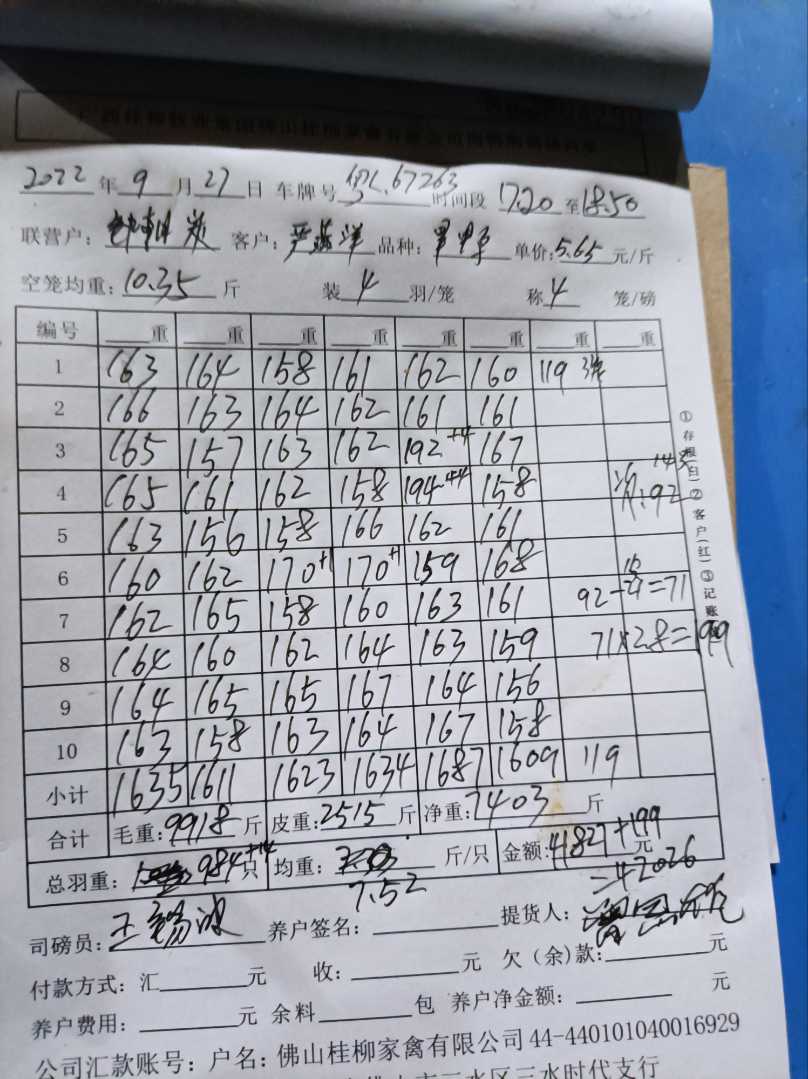 2022年9月27日 车牌号 67263 时间段 17.20至18.50
联营户: 客户: 严 洋 品种: 单价:5.65元/斤
空笼均重:10.35斤 装4羽/笼 称4笼/磅
编号 重 重 重 重 重 重 重 重
1 163 164 158 161 162 160 119
2 166 163 164 162 161 161
3 165 157 163 162 192+4 167
4 165 161 162 158 194+4 158 92
5 163 156 158 166 162 161
6 160 162 170+1 170+1 159 168
7 162 165 158 160 163 161 92-21=71
8 164 160 162 164 163 159 71×2.8=199
9 164 165 165 167 164 156
10 163 158 163 164 167 158
小计 1635 1611 1623 1634 1687 1609 119
合计 毛重:9918斤 皮重:2515斤 净重:7403斤
总羽重: 984+14只 均重: 7.52 斤/只 金额:41827+199元
=42026
司磅员:王锡波 养户签名: 提货人:
付款方式:汇 元 收: 元 欠(余)款: 元
养户费用: 元 余料 包 养户净金额: 元
公司汇款账号:户名:佛山桂柳家禽有限公司44-440101040016929
三水区三水时代支行
①存根(白)②客户(红)③记账